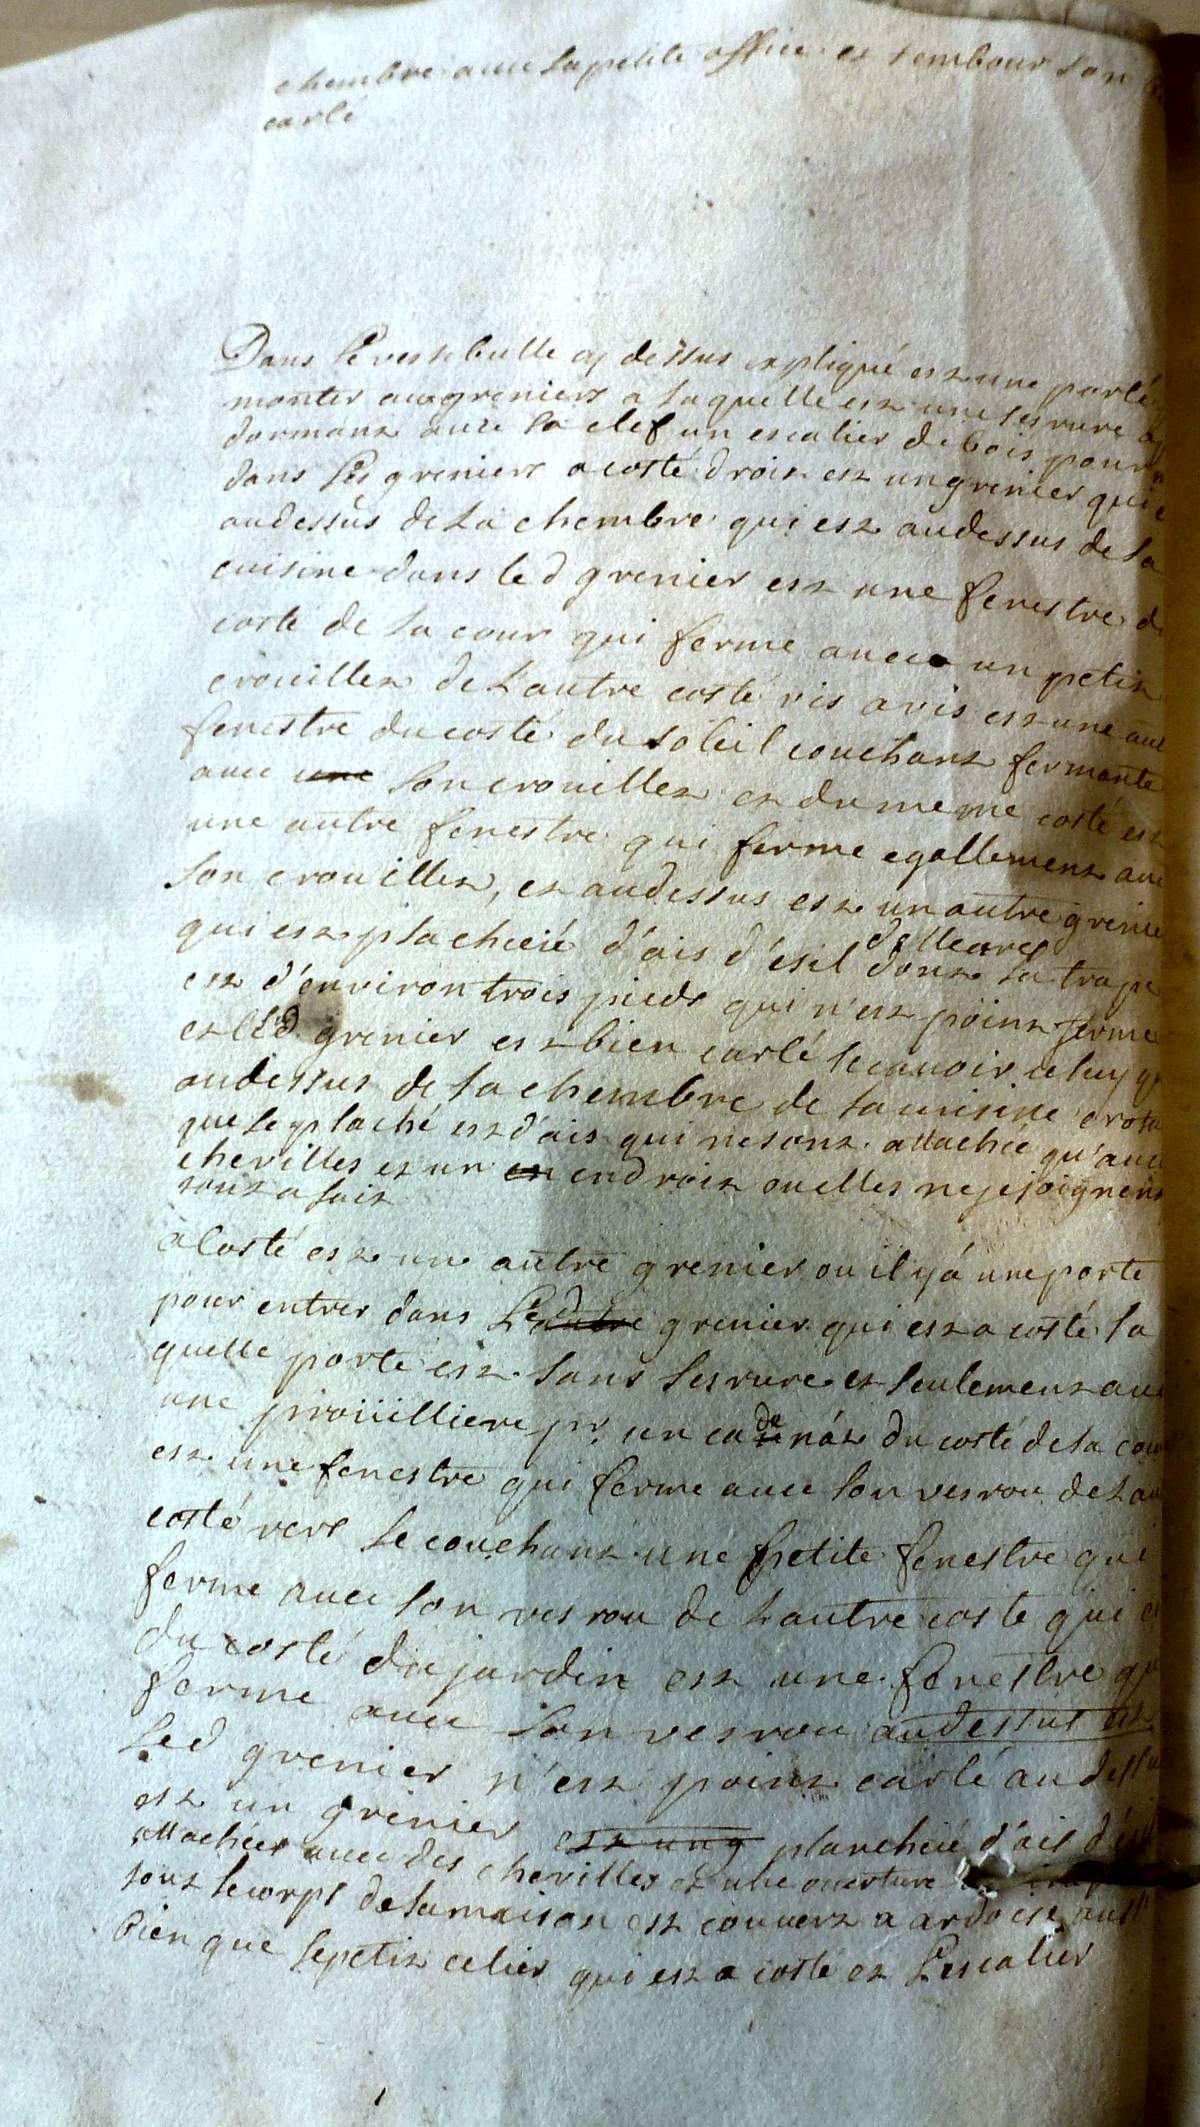 chembre avec la petite office et tembour son
carlé
Dans le vestibulle cy dessus expliqué est une porte
monter aux greniers a laquelle est une serrure a
dormant avec sa clef un escalier de bois pour
dans les greniers a costé droit est un grenier qui
audessus de la chembre qui est audessus de la
cuisine dans led grenier est une fenestre d
costé de la cour qui ferme avec un petit
crouillet de l'autre costé vis a vis est une aut
fenestre du costé du soleil couchant fermante
avec une son crouillet et du meme costé est
une autre fenestre qui ferme egallement avec
son crouillet, et audessus est un autre grenie
qui est placheié d'ais d'esil dont la trape
est d'environ trois pieds qui n'est point ferme
et led grenier est bien carlé scauoir celuy q
audessus de la chembre de la cuisine
que le plaché est d'ais qui ne sont attachée qu'avec
chevilles et un en endroit ou elles ne se joignent
sont a fait
a Costé est une autre grenier ou il y á une porte
pour entrer dans led autre grenier qui est a costé la
quelle porte est sans serrure et seulement avec
une pirouilliere pr. un cadenát du costé de la cour
est une fenestre qui ferme avec son verrou de l'au
costé vers le couchant une petite fenestre qui
ferme avec son verrou de l'autre costé qui e
du costé du jardin est une fenestre qu
ferme avec son verrou audessus est
led grenier n'est point carlé audessu
est un grenier est un g plancheié d'ais d'esil
attachées avec des chevilles et une ouverture
tout le corps de la maison est couvert a ardoise aussi
bien que le petit celier qui est a costé et l'escalier